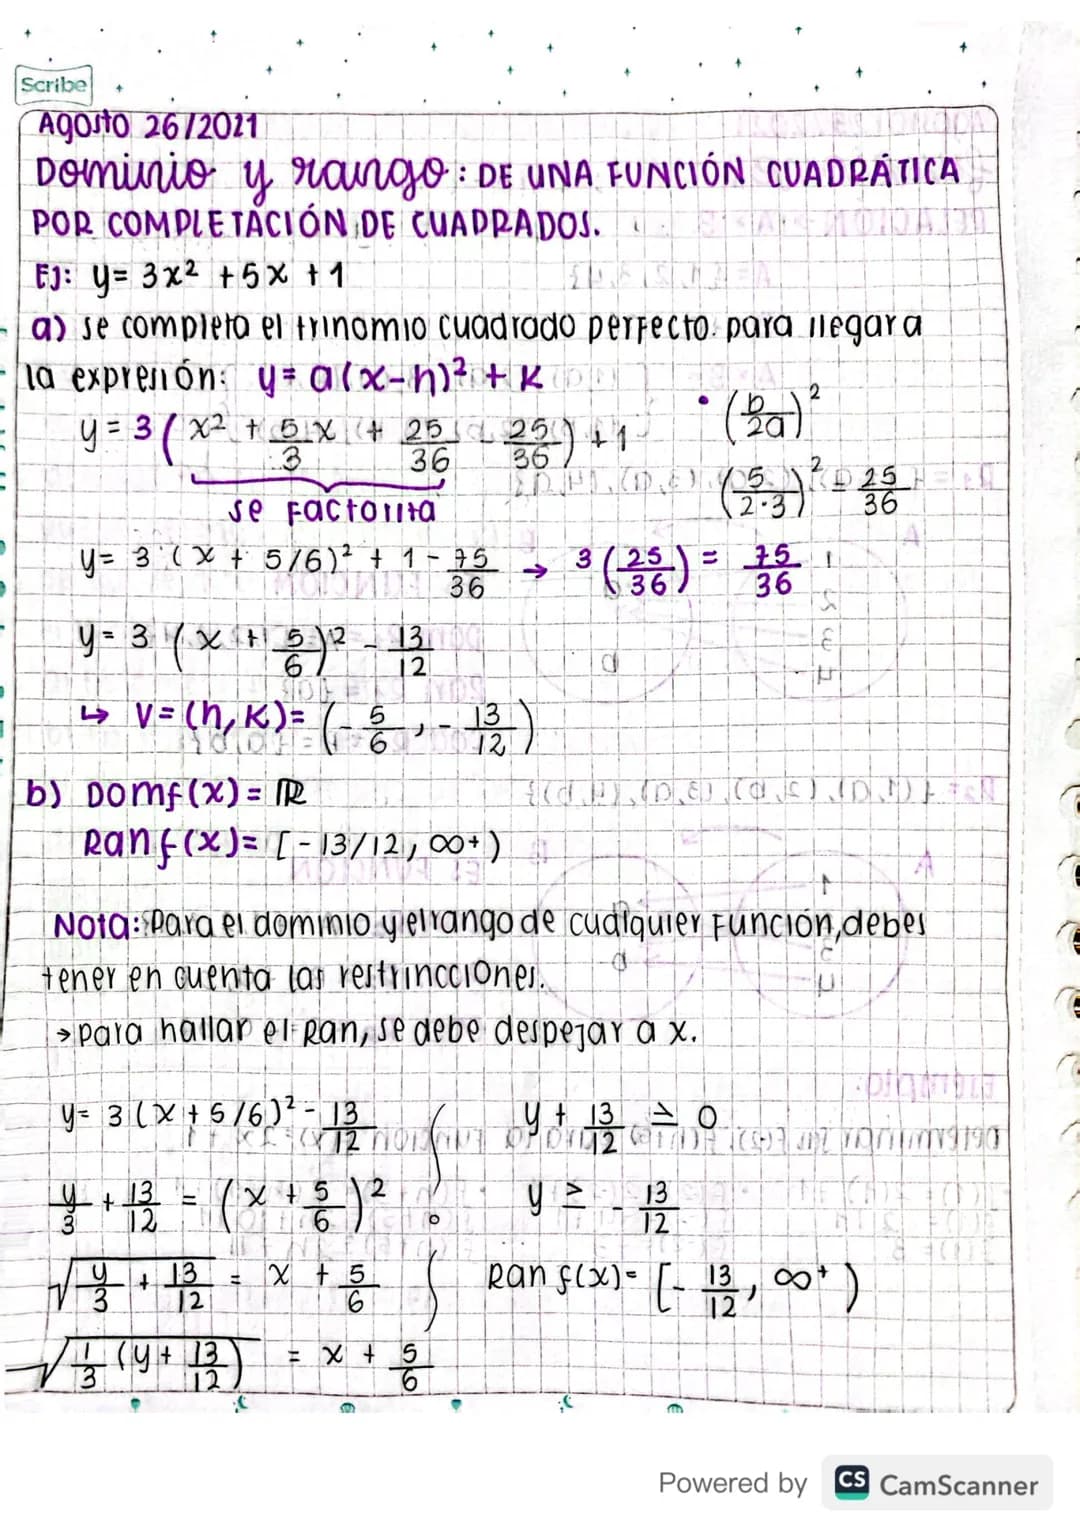 Scribe
Agosto 26/2021
Dominio y rango: DE UNA FUNCIÓN CUADRÁTICA
POR COMPLETACIÓN DE CUADRADOS.
EJ: y= 3x² +5x +1
a) se completa el trinomio cuadrado perfecto para llegar a
la expresión: y= a(x-h)² + K
• (b/2a)²
y= 3(x² + 5/3 x + 25/36 - 25/36) + 1
(5/2·3)² = 25/36
se factoriza
y= 3 (x + 5/6)² + 1 - 75/36 → 3(25/36) = 75/36
y= 3 (x + 5/6)² - 13/12
↳ V=(h,K)= (-5/6, -13/12)
b) Domf(x)= ℝ
Ranf(x)= [-13/12, ∞+)
Nota: Para el dominio y el rango de cualquier Función, debes
tener en cuenta las restrincciones.
→ para hallar el Ran, se debe despejar a x.
y= 3(x+5/6)² - 13/12
y/3 + 13/12 = (x + 5/6)²
√(y/3 + 13/12) = x + 5/6
√(1/3 (y + 13/12)) = x + 5/6
y + 13/12 ≥ 0
y ≥ -13/12
Ran f(x)= [-13/12, ∞+)
Powered by CS CamScanner